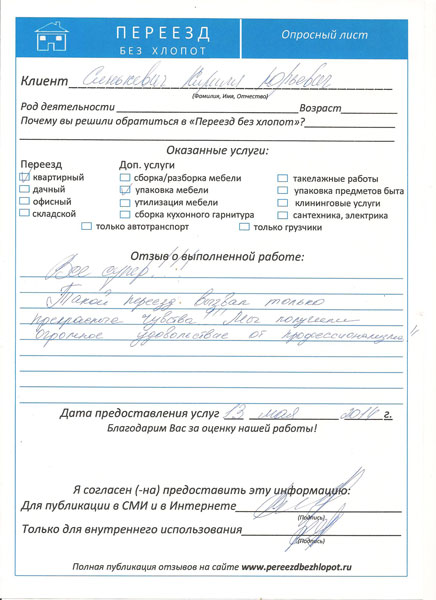 ПЕРЕЕЗД
БЕЗ ХЛОПОТ
Опросный лист
Клиент Синькевич Юрьевна
(Фамилия, Имя, Отчество)
Род деятельности Возраст
Почему вы решили обратиться в «Переезд без хлопот»?
Оказанные услуги:
Переезд Доп. услуги
квартирный сборка/разборка мебели такелажные работы
дачный упаковка мебели упаковка предметов быта
офисный утилизация мебели клининговые услуги
складской сборка кухонного гарнитура сантехника, электрика
только автотранспорт только грузчики
Отзыв о выполненной работе:
Все супер!!!
Такой переезд вызвал только
прекрасные чувства!!! Мы получили
огромное удовольствие от профессионализма!!
Дата предоставления услуг 13 мая г.
Благодарим Вас за оценку нашей работы!
Я согласен (-на) предоставить эту информацию:
Для публикации в СМИ и в Интернете
(Подпись)
Только для внутреннего использования
(Подпись)
Полная публикация отзывов на сайте www.pereezdbezhlopot.ru